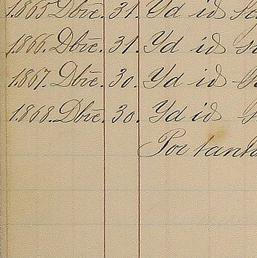 1865 Dbre. 31. Yd id
1866. Dbre. 31. Yd id
1867. Dbre. 30. Yd id
1868. Dbre. 30. Yd id
Por tanto